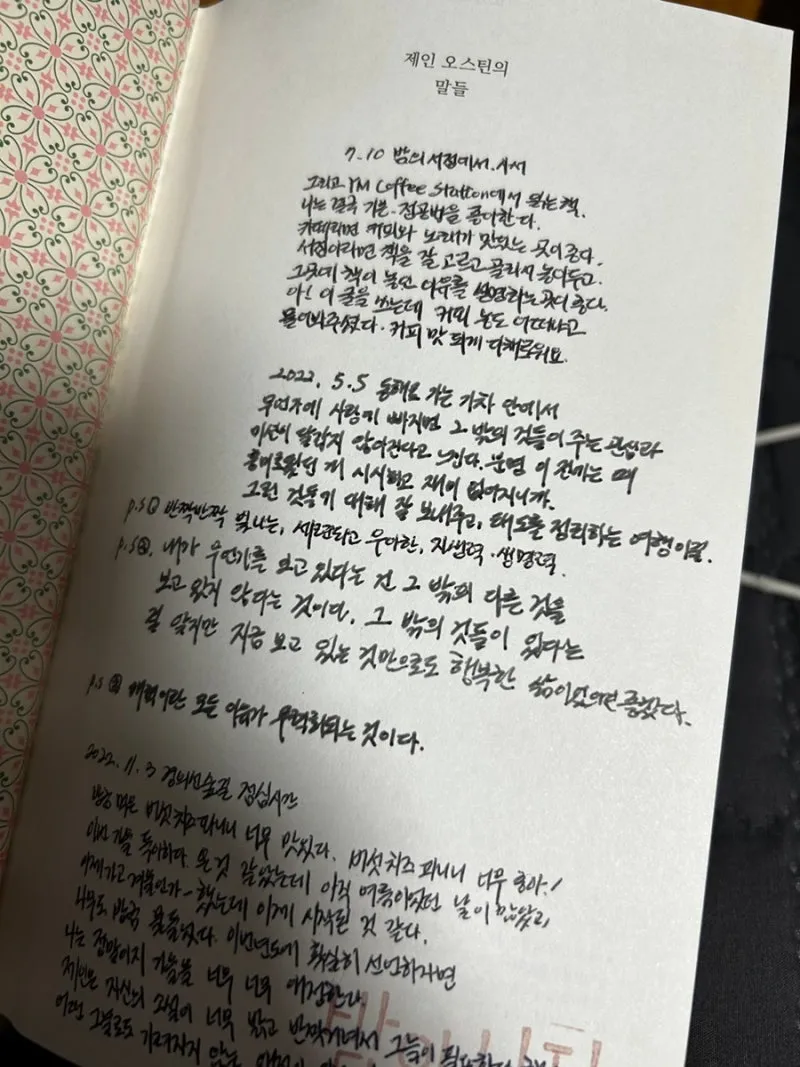 제인 오스틴의
말들
7.10 밤의서점에서. 사서
그리고 YM Coffee Station에서 읽는 책.
나는 결국 기본-정공법을 좋아한다.
카페라면 커피와 노래가 맛있는 곳이 좋다.
서점이라면 책을 잘 고르고 골라서 놓아두고.
그곳에 책이 놓인 이유를 설명하는곳이 좋다.
아! 이 글을 쓰는데 커피 농도 어떠냐고
물어봐주셨다. 커피 맛 되게 다채로워요.
2022. 5.5 동해로 가는 기차 안에서
무언가에 사랑에 빠지면 그 밖의 것들이 주는 관심과
미션이 달갑지 않아진다고 느낀다. 분명 이 전까는 때
흥미로웠던 게 시시하고 재미 없어지니까.
그런 것들기 대해 잘 보내주고, 태도를 정리하는 여행이길.
p.s① 반짝반짝 빛나는, 세련되고 우아한, 자생력·생명력.
p.s②. 내가 무언가를 보고 있다는 건 그 밖의 다른 것을
보고 있지 않다는 것이다. 그 밖의 것들이 있다는
걸 알지만 지금 보고 있는 것만으로도 행복한 삶이었으면 좋겠다.
p.s ③ 매력이란 모든 이유가 무력화되는 것이다.
2022. 11. 3 경의선숲길 점심시간
방금 먹은 버섯치즈파니니 너무 맛있다. 버섯치즈 파니니 너무 좋아!
이번 가을 특이하다. 온것 같았는데 아직 여름이었던 날이 많았고,
이제가고 겨울인가- 했는데 이게 시작된 것 같다.
나무도 방금 물들었다. 이번년도에 확실히 선언하자면
나는 정말이지 가을을 너무 너무 애정한다.
제인은 자신의 소설이 너무 밝고 반짝거려서 그늘이 필요하다
어떤 그늘로도 가려지지 않는